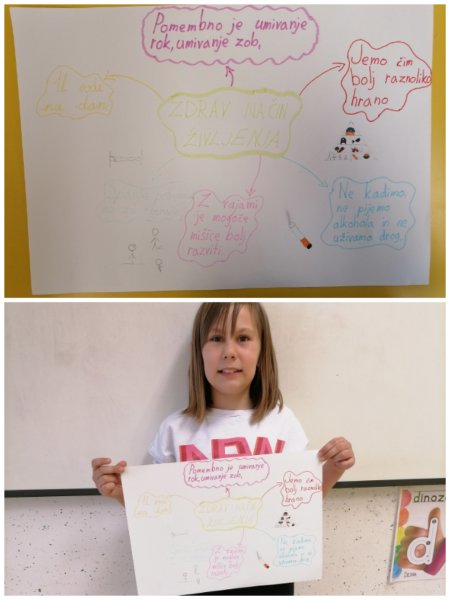 Pomembno je umivanje
rok, umivanje zob,
Jemo čim
bolj raznoliko
hrano
1l vode
na dan
ZDRAV NAČIN
ŽIVLJENJA
Z vajami
je mogoče
mišice bolj
razviti.
Ne kadimo,
ne pijemo
alkohola in ne
uživamo drog.
Pomembno je umivanje
rok, umivanje zob,
Jemo čim
bolj raznoliko
hrano
1l vode
na dan
ZDRAV NAČIN
ŽIVLJENJA
Z vajami
je mogoče
mišice bolj
razviti.
Ne kadimo,
ne pijemo
alkohola in ne
uživamo drog.
dinoza
d